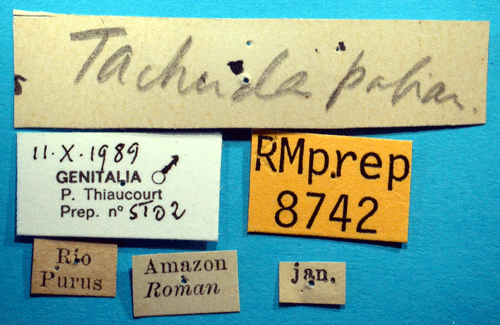 Tachuda
11·X·1989
GENITALIA ♂
P. Thiaucourt
Prep. n°
RMprep
8742
Rio
Purus
Amazon
Roman
jan.